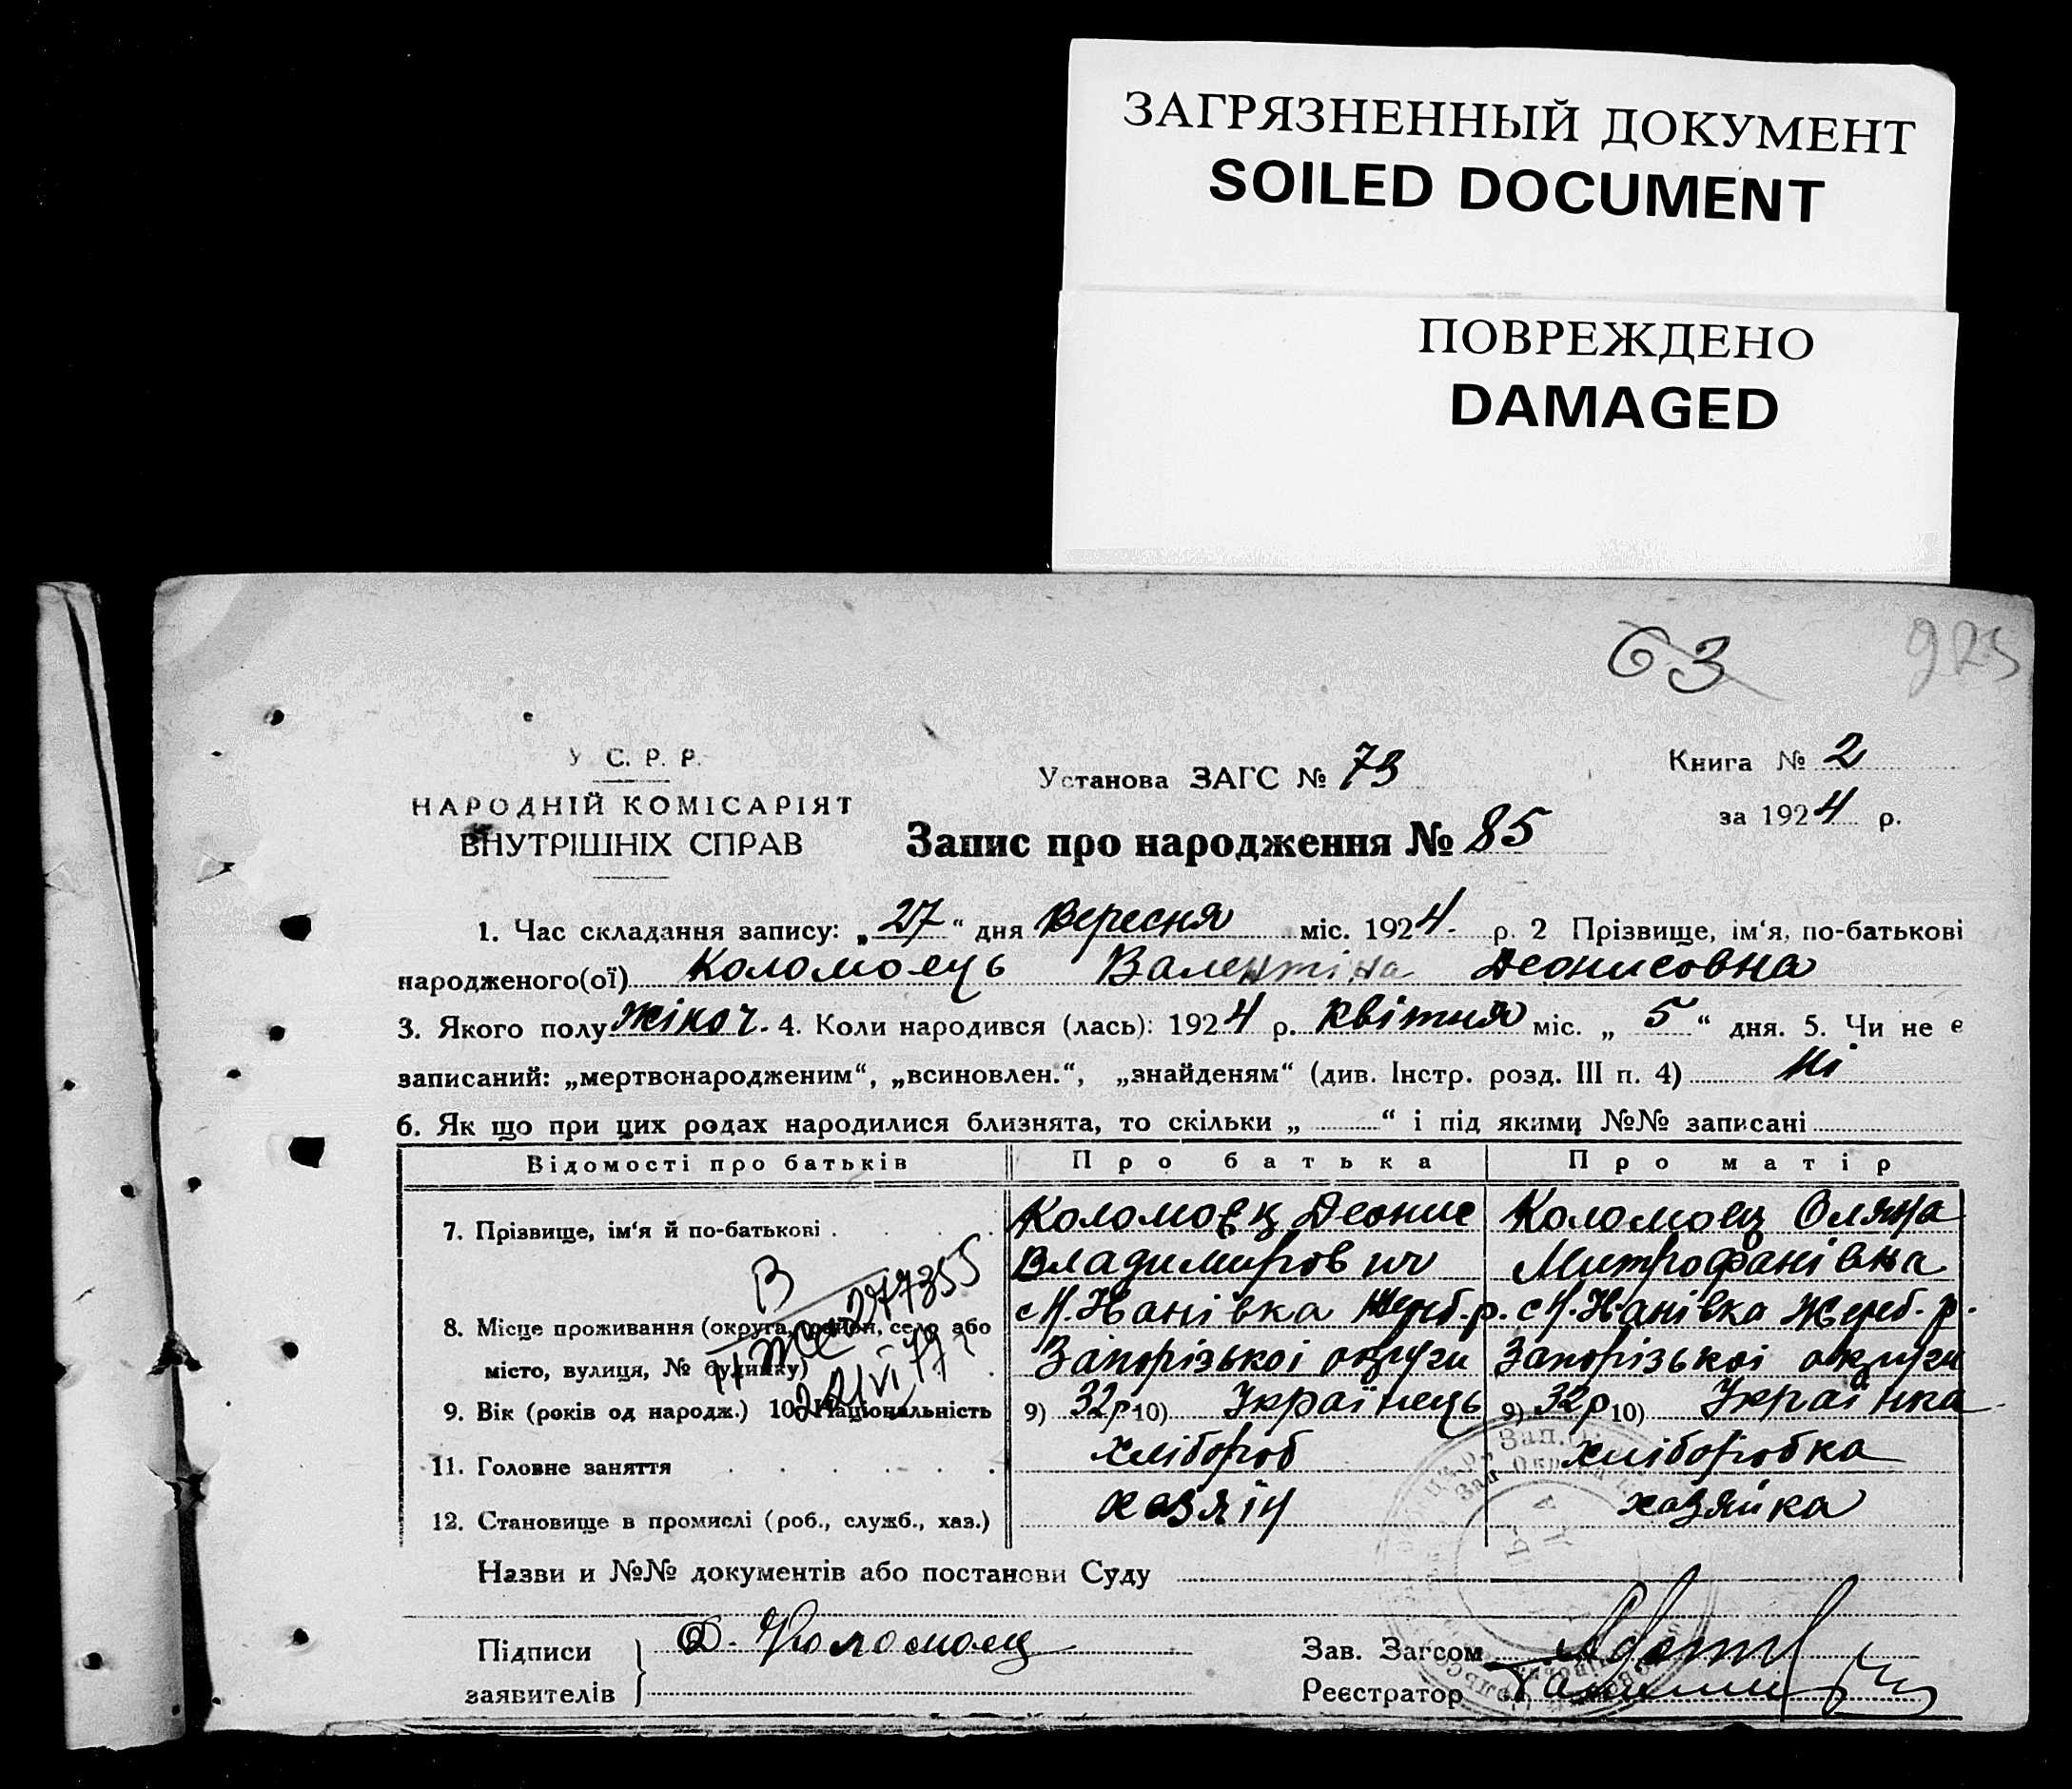 ЗАГРЯЗНЕННЫЙ ДОКУМЕНТ
SOILED DOCUMENT
ПОВРЕЖДЕНО
DAMAGED
63
925
У. С. Р. Р.
НАРОДНІЙ КОМІСАРІЯТ
ВНУТРІШНІХ СПРАВ
Установа ЗАГС № 73
Книга № 2
за 1924 р.
Запис про народження № 85
1. Час складання запису: „27“ дня Вересня міс. 1924 р. 2 Прізвище, ім'я, по-батькові
народженого(ої) Коломоець Валентіна Деонисовна
3. Якого полу жіноч. 4. Коли народився (лась): 1924 р. Квітня міс. „ 5 “ дня. 5. Чи не є
записаний: „мертвонародженим“, „всиновлен.“, „знайденям“ (див. Інстр. розд. III п. 4) Ні
6. Як що при цих родах народилися близнята, то скільки „ “ і під якими №№ записані
Відомості про батьків Про батька Про матір
7. Прізвище, ім'я й по-батькові Коломоец Деонис Коломоец Оляна
Владимирович Митрофанівна
8. Місце проживання (округа, район, село або с М. Іванівка Жереб. р. с М. Іванівка Жереб. р.
місто, вулиця, № будинку) Запорізької округи Запорізької округи
9. Вік (років од народж.) 10. Національність 9) 32 р 10) Українець 9) 32 р 10) Українка
11. Головне заняття хлібороб хліборобка
12. Становище в промислі (роб., служб., хаз.) хазяін хазяйка
В
277355
Назви и №№ документів або постанови Суду
Підписи заявителів Д. Коломоец
Зав. Загсом
Реєстратор